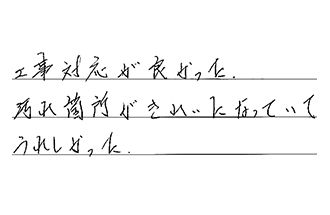 工事対応が良かった.
汚れ箇所がきれいになっていて
うれしかった.